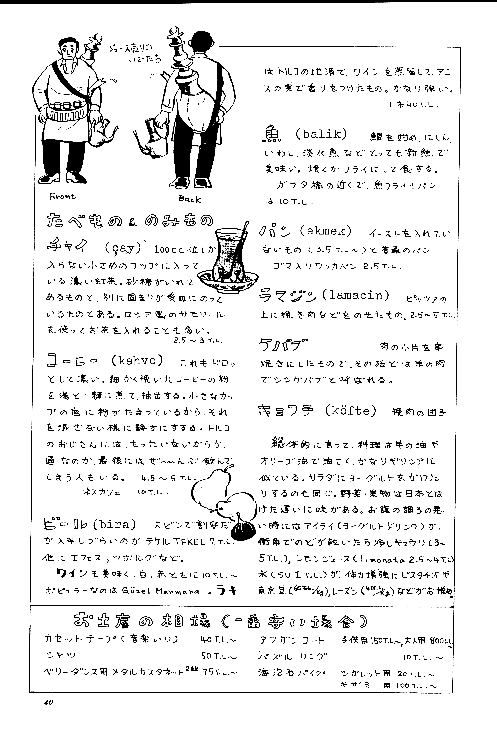 ジュース売りの
いでたち
Front
Back
たべもの&のみもの
チャイ (çay) 100cc位しか
入らない小さめのコップに入って
いる濃い紅茶。砂糖がいれて
あるものと、別に固まりが受皿にのって
いるものとある。ロシア風のサモワール
を使ってお茶を入れることも多い。
2.5〜3T.L.
コーヒー (kahve) これもドロッ
として濃い。細かく挽いたコーヒーの粉
を湯と一緒に煮て、抽出する。小さなカッ
プの底に粉がたまっているから、それ
を
のおじさんには、もったいないからか、
通なのか、最後にはぜ〜んぶ飲んで
しまう人もいる。 4.5〜5T.L.
ネスカフェ 10T.L.
ビール (bira)
が入手しづらいのが テケル TEKEL
他にエフェス、ツボルグなど。
ワインも美味く、白、赤ともに10T.L.〜
ポピュラーなのは Güzel Marmara。 ラキ
はトルコの地酒で、ワインを蒸留して、アニ
スの実で香りをつけたもの。かなり強い。
1本40T.L.
魚 (balik) 鯛を始め、にしん、
いわし、淡水魚、などとっても新鮮で
美味い。焼くかフライにして食する。
ガラタ橋の近くで、魚フライ1パン
10T.L.
パン (ekmek) イーストを入れてい
ないもの (3.5T.L.〜) と普通のパン
ゴマ入りワッカパン 2.5T.L.
ラマジン (lamacin) ピッツァの
上に挽き肉などをのせたもの。2.5〜5T.L.
ケバブ 肉の小片を串
焼きにしたもので、その殆どは羊の肉
でシシケバブと呼ばれる。
キョフテ (köfte) 焼肉の団子
総体的に言って、料理は羊の油や
オリーブ油で油こく、かなりギリシアに
似ている。サラダにヨーグルトをかけた
りするのも同じ。野菜・果物は日本とは
けた違いに味がある。お腹の調子の悪
い時にはアイラン(ヨーグルトドリンク)が、
街角でのどが乾いたら冷しチェリ(3〜
5T.L.)、レモンジュース(limonata 2.5〜4T.L.)
水(50 1T.L.)が、体力増強にピスタチオや
お土産の相場 (一番安い場合)
カセットテープ(音楽いり) 40T.L.〜
シャツ 50T.L.〜
ベリーダンス用メタルカスタネット 75T.L.〜
子供用150T.L.〜、大人用800T.L.
パズルリング 10T.L.〜
海泡石パイプ シガレット用 20T.L.〜
キザミ用 100T.L.〜
40